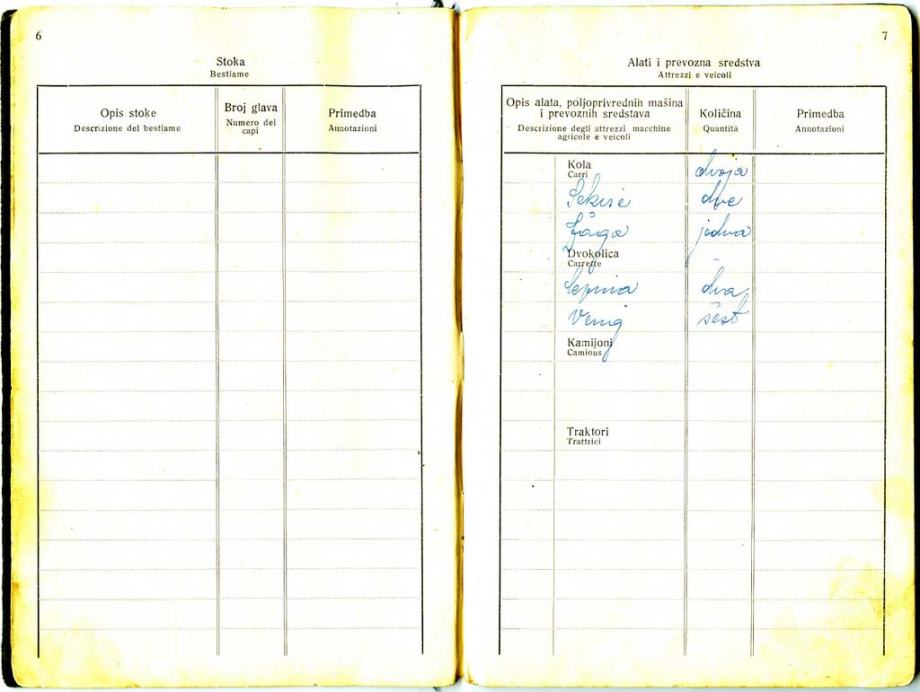 6
Stoka
Bestiame
Opis stoke
Descrizione del bestiame
Broj glava
Numero dei
capi
Primedba
Annotazioni
7
Alati i prevozna sredstva
Attrezzi e veicoli
Opis alata, poljoprivrednih mašina
i prevoznih sredstava
Descrizione degli attrezzi macchine
agricole e veicoli
Količina
Quantità
Primedba
Annotazioni
Kola dvoja
Carri
Sekire dve
Žaga jedna
Dvokolica
Carrette
dva
šest
Kamijoni
Camious
Traktori
Trattrici